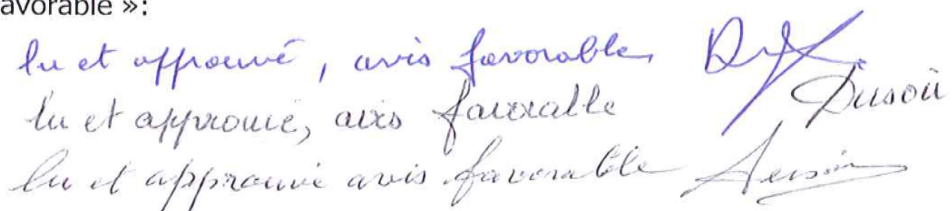 avorable »:
lu et approuvé, avis favorable
lu et approuvé, avis favorable Dusoii
lu et approuvé avis favorable